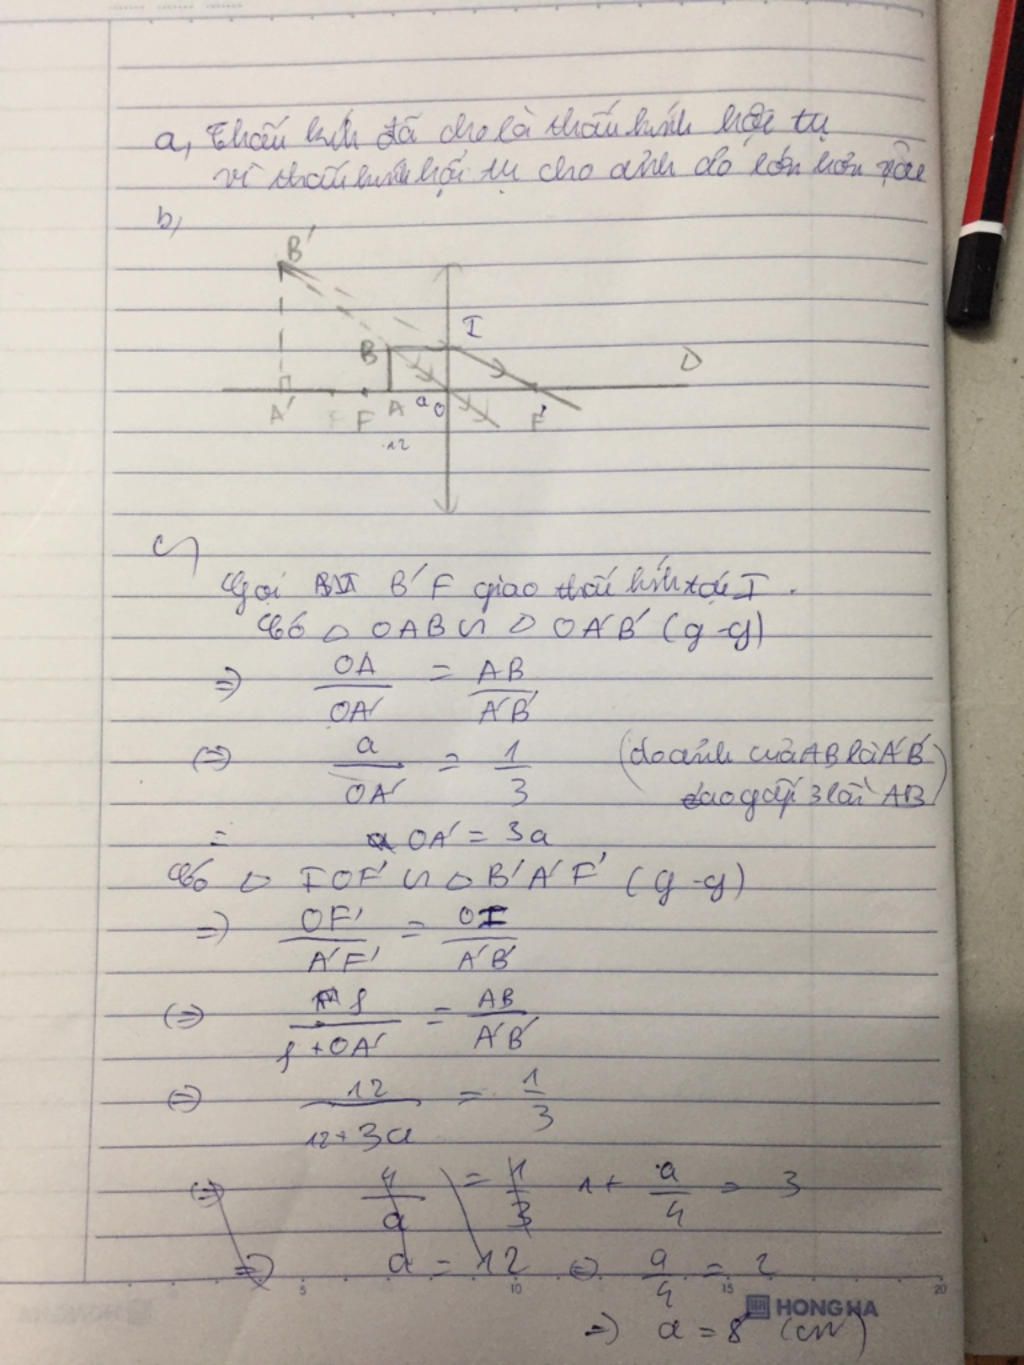 a, Thấu kính đã cho là thấu kính hội tụ
vì thấu kính hội tụ cho ảnh ảo lớn hơn vật
b,
B'
I
B
Δ
A' F A a O F'
12
c,
Gọi B'F giao thấu kính tại I.
Có △ OAB ∽ △ OA'B' (g-g)
=> OA/OA' = AB/A'B'
<=> a/OA' = 1/3 (do ảnh của AB là A'B'
cao gấp 3 lần AB)
= OA' = 3a
Có △ IOF' ∽ △ B'A'F' (g-g)
=> OF'/A'F' = OI/A'B'
<=> f/f+OA' = AB/A'B'
<=> 12/12+3a = 1/3
<=> 4/a = 1/3 1 + a/4 = 3
=> a = 12 <=> a/4 = 2
=> a = 8 (cm)
5 10 15 20
HONG HA